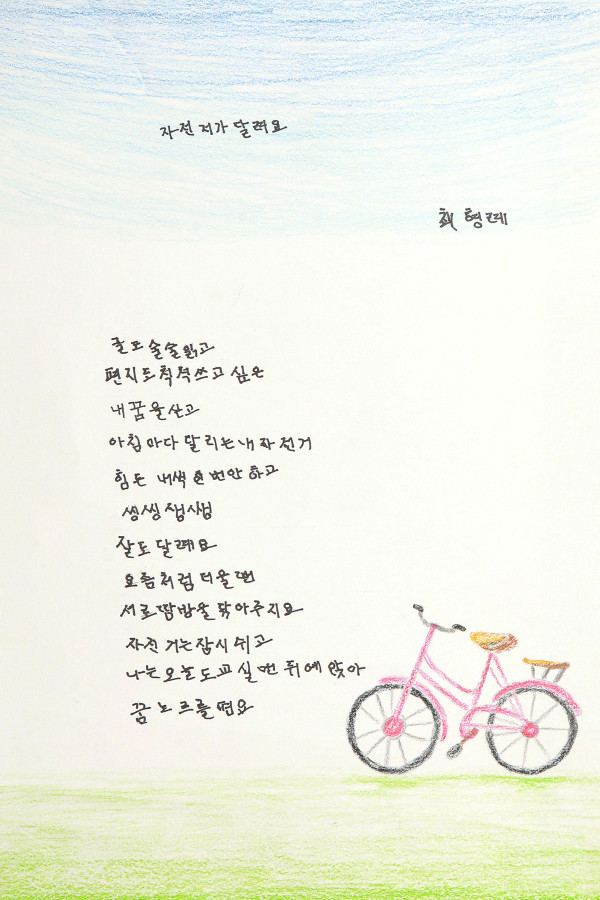 자전저가 달려요
최형례
글도 술술 읽고
편지도 척척 쓰고 싶은
내 꿈을 싣고
아침마다 달리는 내 자전거
힘든 내색 한번 안 하고
씽씽 쌩쌩
잘도 달려요
요즘처럼 더울 땐
서로 땀방울 닦아주지요
자전거는 잠시 쉬고
나는 오늘도 교실 먼 뒤에 앉아
꿈 노트를 펴요